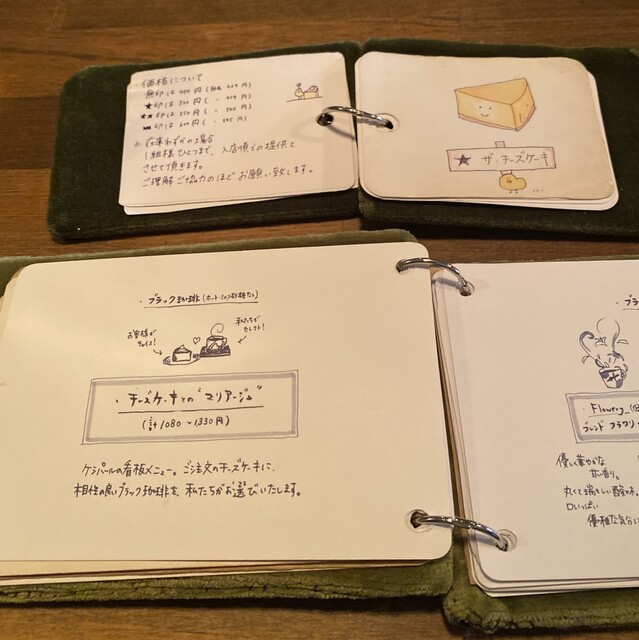 ・価格について
無印は 450 円
★印は 500 円
★★印は 550 円
印は 600 円
在庫わずかの場合
1組様ひとつまで、入店順での提供と
させて頂きます。
ご理解ご協力のほどお願い致します。
★ ザ・チーズケーキ
・ブラック珈琲(ホット・ミルク砂糖なし)
お客様が
チョイス!
私たちが
セレクト!
・チーズケーキとの"マリアージュ"
(計1080~1330円)
ケシパールの看板メニュー。ご注文のチーズケーキに、
相性の良いブラック珈琲を、私たちがお選びいたします。
・ブラ
・Flowery
ブレンド フラワリー
優しく華やかな
甘い香り。
丸くて瑞々しい酸味。
口いっぱい
優雅な気分に